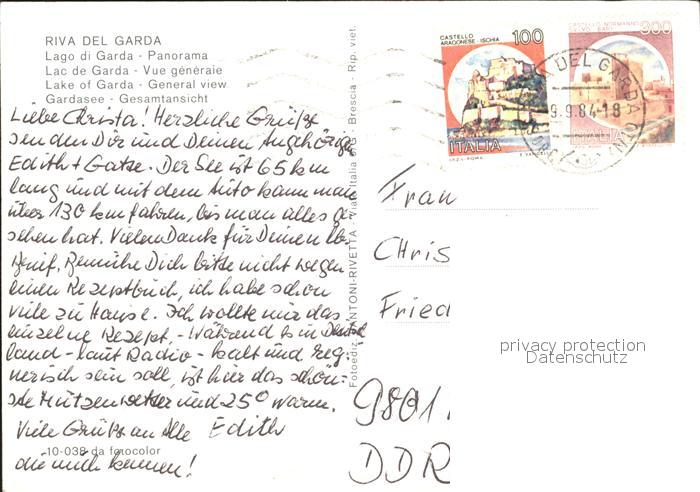 RIVA DEL GARDA
Lago di Garda - Panorama
Lac de Garda - Vue générale
Lake of Garda - General view
Gardasee - Gesamtansicht
Liebe Christa! Herzliche Grüße
senden Dir und Deinen Angehörigen
Edith + Gatte. Der See ist 65 km
lang und mit dem Auto kann man
über 130 km fahren, bis man alles ge-
sehen hat. Vielen Dank für Deinen lb.
Brief. Bemühe Dich bitte nicht wegen
einen Rezeptbuch, ich habe schon
viele zu Hause. Ich wollte nur das
einzelne Rezept. - Während es in Deutsch
land - laut Radio - kalt und reg-
nerisch sein soll, ist hier das schön-
ste Wetter und 25° warm.
Viele Grüße an Alle Edith
die mich kennen!
10-038 da fotocolor
Fotoediz. ANTONI-RIVETTA - Viale Italia - Brescia - Rip. viet.
CASTELLO
ARAGONESE - ISCHIA
100
ITALIA
CASTELLO NORMANNO
300
ITALIA
DEL GARDA
9.9.84-18
Frau
Chris
Fried
9801
DDR
privacy protection
Datenschutz